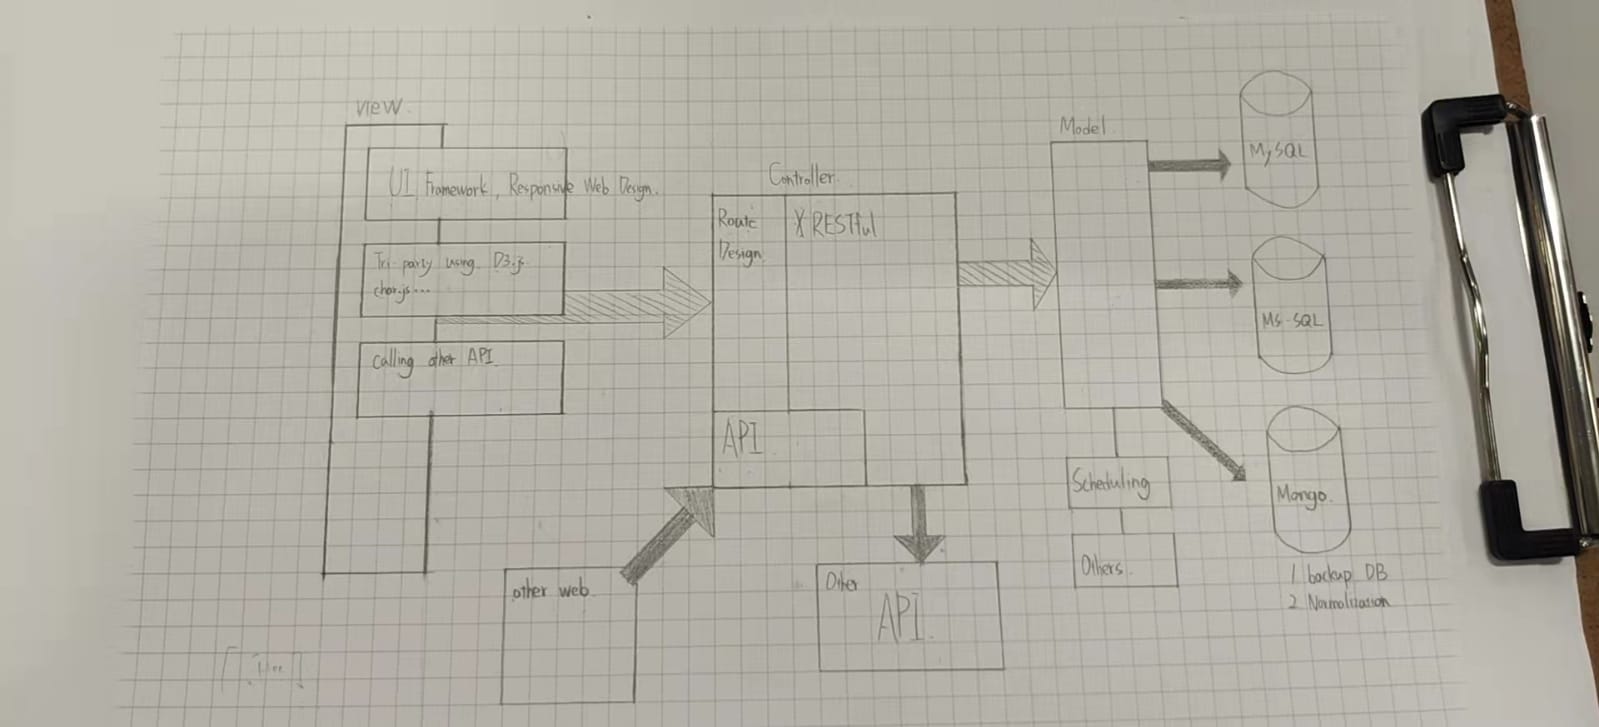 View.
UI Framework, Responsive Web Design.
Tri party using D3.js
char.js...
calling other API
Controller.
Route
Design
X RESTful
API
other web
Other
API.
Model.
Scheduling
Others.
MySQL
Ms-SQL
Mongo.
1 backup DB
2 Normalization